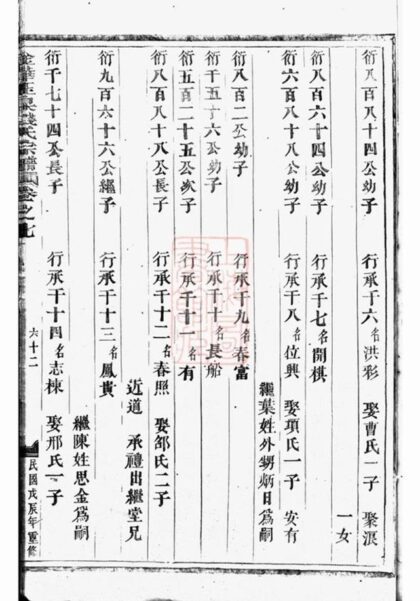 衍八百八十四公幼子　行承千六名洪彩　娶曹氏一子　聚浪
一女
衍八百六十四公幼子　行承千七名開棋
衍六百八十八公幼子　行承千八名位興　娶項氏一子　安有
繼葉姓外甥炳日爲嗣
衍八百二公幼子　行承千九名春富
衍千五十六公幼子　行承千十名長船
衍五百二十五公次子　行承千十一名有
衍八百八十八公長子　行承千十二名春照　娶邹氏二子
近道　承禮出繼堂兄
衍九百六十六公繼子　行承千十三名鳳貴
繼陳姓思金爲嗣
衍千七十四公長子　行承千十四名志棟　娶邢氏一子
錢氏宗譜　卷之七
六十二
民國戊辰年重修